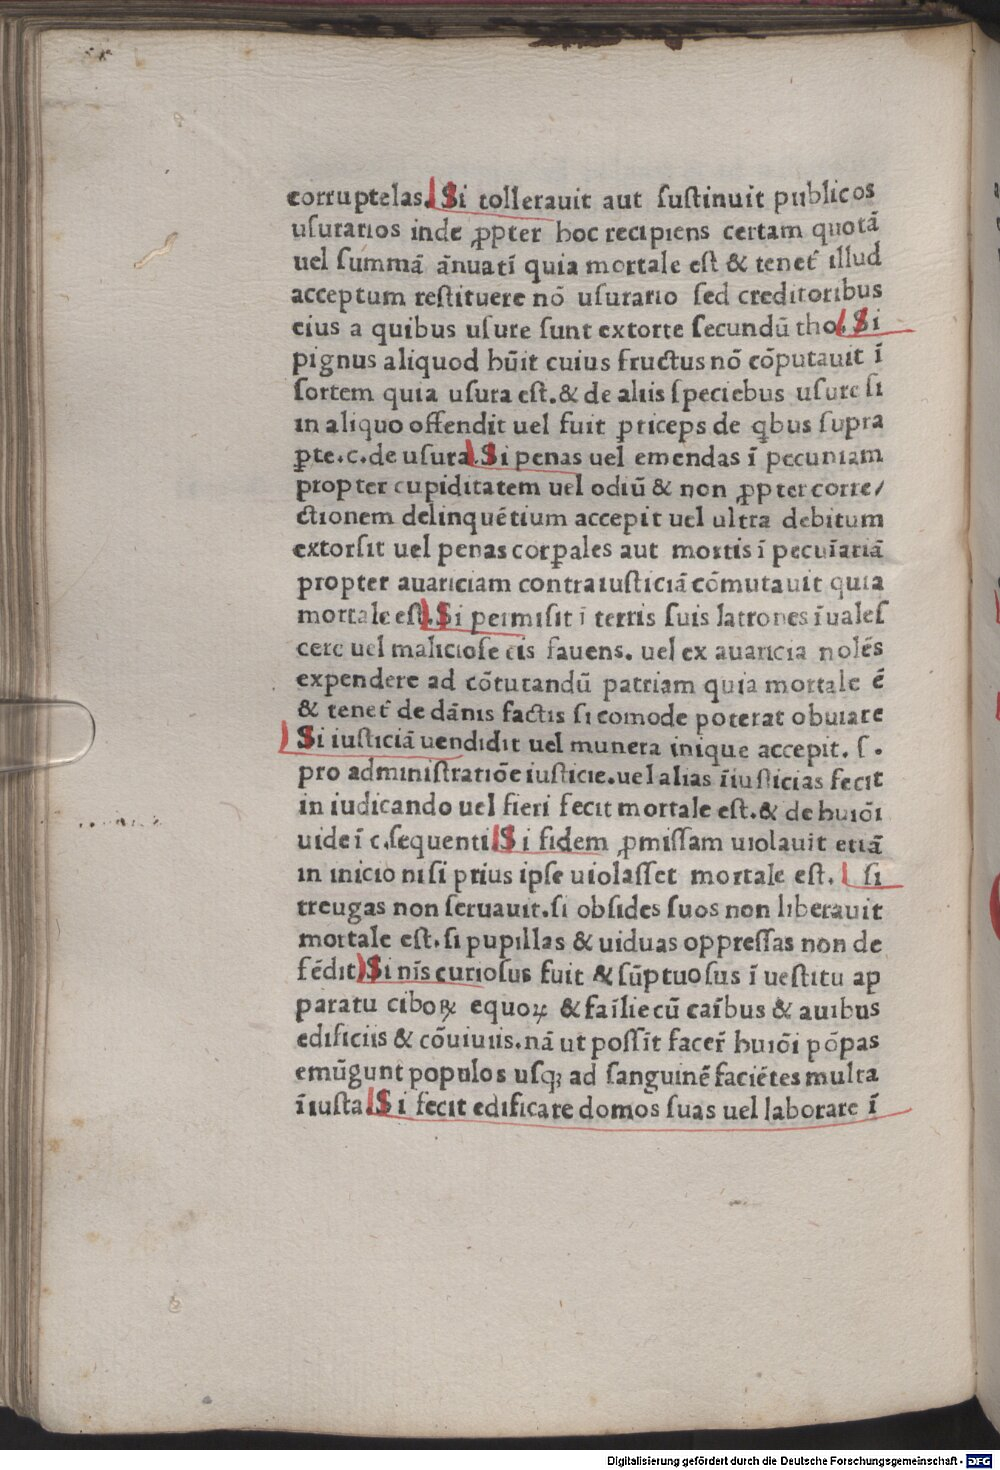 corruptelas. Si tollerauit aut ſuſtinuit publicos
uſurarios inde ꝓpter hoc recipiens certam quotā
uel ſummā ānuatī quia mortale eſt & teneť illud
acceptum reſtituere nō uſurario ſed creditoribus
eius a quibus uſure ſunt extorte ſecundū tho. Si
pignus aliquod hūit cuius fructus nō cōputauit ī
ſortem quia uſura eſt. & de aliis ſpeciebus uſure ſi
in aliquo offendit uel fuit ꝑticeps de qbus ſupra
ꝑte.c.de uſura. Si penas uel emendas ī pecuniam
propter cupiditatem uel odiū & non ꝓpter corre/
ctionem delinquētium accepit uel ultra debitum
extorſit uel penas corꝑales aut mortis ī pecuīariā
propter auariciam contra iuſticiā cōmutauit quia
mortale eſt. Si permiſit ī terris ſuis latrones īualeſ
cere uel malicioſe eis fauens. uel ex auaricia nolēs
expendere ad cōtutandū patriam quia mortale ē
& teneť de dānis factis ſi comode poterat obuiare
Si iuſticiā uendidit uel munera inique accepit. ſ.
pro adminiſtratiōe iuſticie. uel alias īiuſticias fecit
in iudicando uel fieri fecit mortale eſt. & de huiōi
uide ī c.ſequenti. Si fidem ꝓmiſſam uiolauit etiā
in inicio niſi prius ipſe uiolaſſet mortale eſt. ſi
treugas non ſeruauit. ſi obſides ſuos non liberauit
mortale eſt. ſi pupillas & uiduas oppreſſas non de
fēdit. Si nīs curioſus fuit & ſūptuoſus ī ueſtitu ap
paratu ciboꝝ equoꝝ & faīlie cū caībus & auibus
edificiis & cōuiuiis. nā ut poſſīt faceř huiōi pōpas
emūgunt populos uſqꝫ ad ſanguinē faciētes multa
īiuſta. Si fecit edificare domos ſuas uel laborare ī
Digitalisierung gefördert durch die Deutsche Forschungsgemeinschaft - DFG